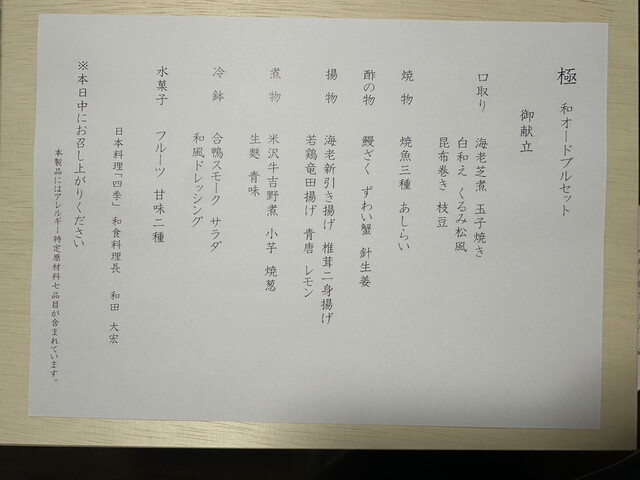 極 和オードブルセット
御献立
口取り 海老芝煮 玉子焼き
白和え くるみ松風
昆布巻き 枝豆
焼物 焼魚三種 あしらい
酢の物 鰻ざく ずわい蟹 針生姜
揚物 海老新引き揚げ 椎茸二身揚げ
若鶏竜田揚げ 青唐 レモン
煮物 米沢牛吉野煮 小芋 焼葱
生麩 青味
冷鉢 合鴨スモーク サラダ
和風ドレッシング
水菓子 フルーツ 甘味二種
日本料理「四季」 和食料理長 和田 大宏
※本日中にお召し上がりください
本製品にはアレルギー特定原材料七品目が含まれています。